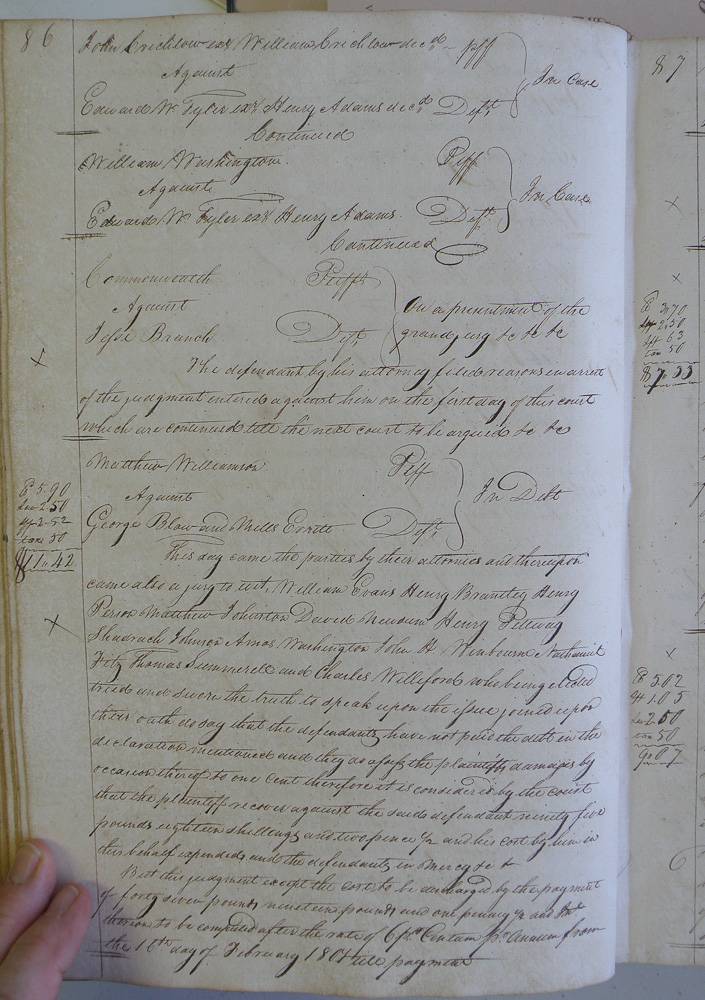 86
John Crichlow exr William Crichlow decd Plff
Against In Case
Edward W. Tyler exr Henry Adams decd Deft
Continued
William Washington Plff
Against In Case
Edward W. Tyler exr Henry Adams Deft
Continued
Commonwealth Pliff
Against On a presentment of the
Jesse Branch Deft grand jury &c &c &c
The defendant by his attorney filed reasons in arrest
of the judgment entered against him on the first day of this court
which are continued till the next court to be argued &c &c
Matthew Williamson Plff
Against In Debt
George Blow and Mills Everitt Defts
This day came the parties by their attornies and thereupon
came also a jury to wit, William Evans Henry Brantley Henry
Person Matthew Johnston David Newsum Henry
Shadrach Johnson Amos Washington John H Winbourne Nathaniel
Fitz Thomas Summerell and Charles Williford who being elected
tried and sworn the truth to speak upon the issue joined upon
their oath do say that the defendants have not paid the debt in the
declaration mentioned and they do assess the plaintiffs damages by
occasion thereof to one cent therefore it is considered by the court
that the plaintiff recover against the said defendant ninety five
pounds eighteen shillings and two pence 1/2 and his cost by him in
this behalf expended and the defendants in Mercy &c &
But this judgment except the cost to be discharged by the payment
of forty seven pounds nineteen pounds and one penny 1/4 and Int
thereon to be computed after the rate of 6 pr Centum pr annum from
the 10th day of February 1801 till payment
C 5.90
2.50
2.52
tax 50
$11.42
87
C 3.70
2.50
63
tax 50
$7.33
C 5.02
1.05
2.50
tax 50
9.07